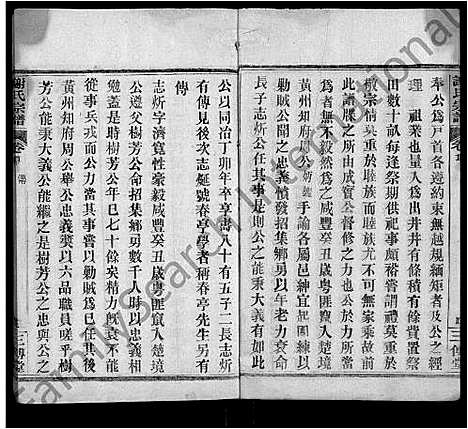 奉公爲戸首各遵約束無越規繩矩者及公之經
理 祖業也量入爲出井井有條貲置祭
田數十畝每逢祭期供祀事頗裕嘗謂禮莫重於
敬宗情莫重於睦族而睦族尤不可無家乘故前
癸 譜牒之所由成實公督修之力也公
爲者無不毅然爲之咸豐癸丑歲粤匪竄入楚境
黄州知府周 諭各屬邑紳宜
以勦賊公聞之忠憤發招集鄉勇以年老力衰命
長子志炘公往是則公之能秉大義有如此
公以同治丁卯年卒享壽八十有五子二長志炘
有傳見後次志 號春亭學者稱春亭先生另有
傳
志炘字濟寛性豪毅咸豐癸丑歲粤匪竄入楚境
公遵父樹芳公命招集鄉勇數千人時以忠義相
勉蓋是時樹芳公年已七十餘矣精力既衰不能
從事兵戎而公力當其事嘗以勦賊爲已任其後
黄州知府周公舉公忠義奬以六品職員嗟乎樹
芳公能秉大義公能繼之是樹芳公之忠與公之
謝氏宗譜
卷
傳
三傳堂
FamilySearch International